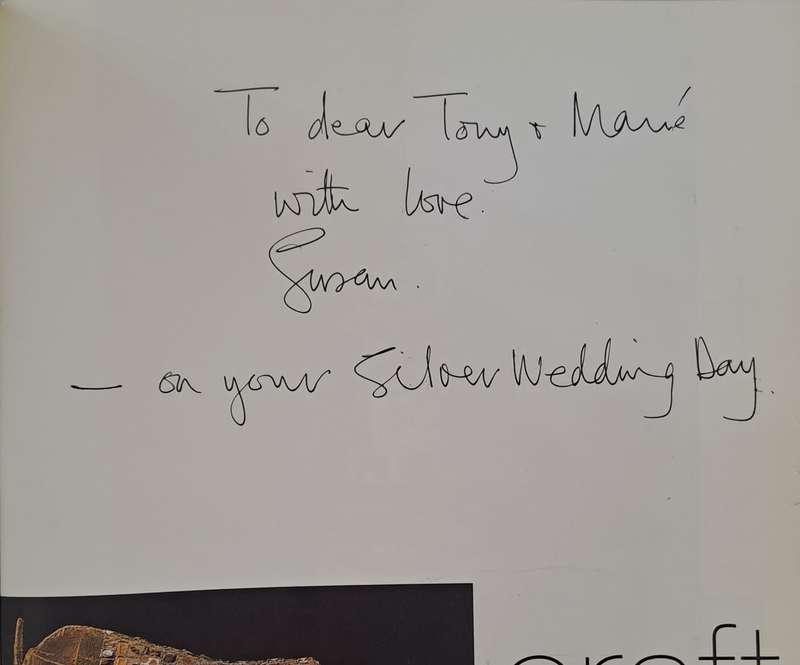 To dear Tony + Marie
with love.
Susan.
— on your Silver Wedding Day.
craft